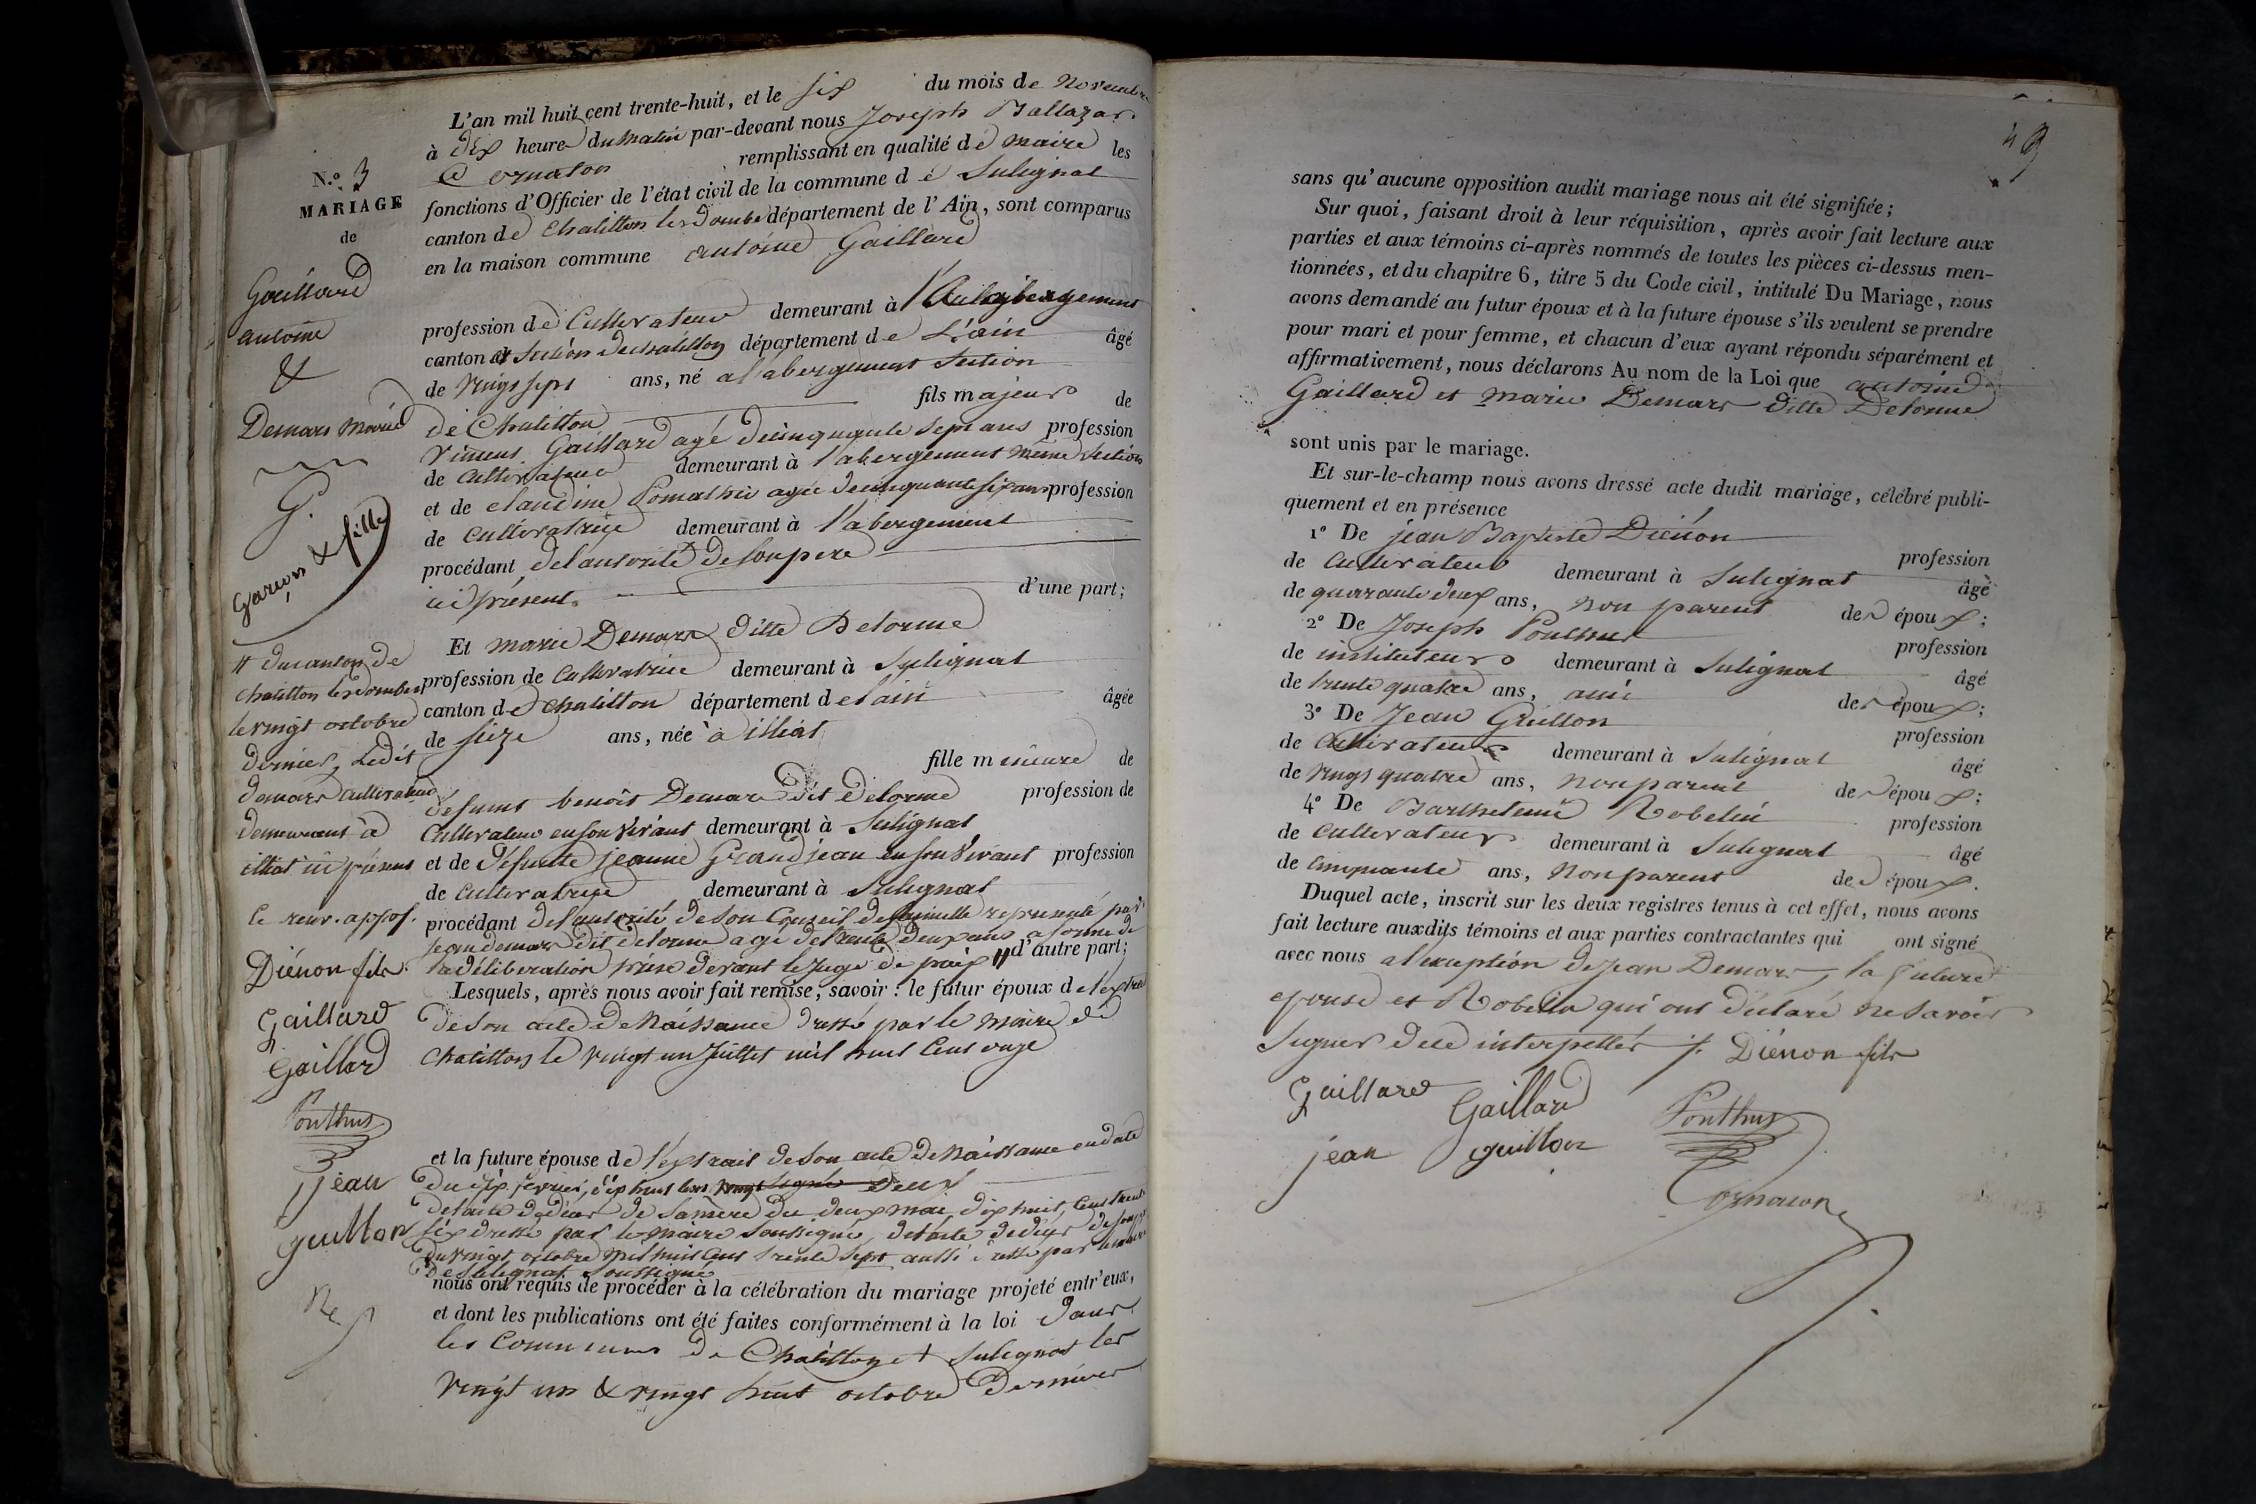 N.º 3
MARIAGE
de
Gaillard
antoine
&
Demars marie
G.
garçon & fille
// du canton de
chatillon les Dombes
le vingt octobre
dernier, Ledit
demars cultivateur
demeurant à
illiat ici présent
le renv. appr.
Diénon fils
Gaillard
Gaillard
Ponthus
jean
guillon
L'an mil huit cent trente-huit, et le six du mois de Novembre
à dix heures du matin par-devant nous Joseph Baltazar
Cornaton remplissant en qualité de maire les
fonctions d'Officier de l'état civil de la commune de Sulignat
canton de Chatillon les Dombes département de l'Ain, sont comparus
en la maison commune antoine Gaillard
profession de Cultivateur demeurant à l'abergement
canton et section de chatillon département de L'ain âgé
de vingt sept ans, né à l'abergement section
de Chatillon fils majeur de
vincent Gaillard agé de cinquante sept ans profession
de cultivateur demeurant à l'abergement même section
et de claudine agée de cinquante six ans profession
de cultivatrice demeurant à l'abergement
procédant de l'autorité de son pere
ici présent. d'une part;
Et marie Demars ditte Delorme
profession de cultivatrice demeurant à Sulignat
canton de chatillon département de lain âgée
de seize ans, née à illiat
fille mineure de
défunt benoit Demars dit Delorme profession de
Cultivateur en son vivant demeurant à Sulignat
et de défunte jeanne Grandjean en son vivant profession
de cultivatrice demeurant à Sulignat
procédant de l'autorité de son Conseil de famille représenté par
jean demars dit delorme agé de trente deux ans a forme de
la déliberation prise devant le juge de paix // d'autre part;
Lesquels, après nous avoir fait remise, savoir : le futur époux de lextrait
de son acte de Naissance dressé par le maire de
Chatillon le vingt un juillet mil huit cent onze
et la future épouse de l'extrait de son acte de Naissance en date
du dix février, dix huit cent vingt deux
de l'acte de décès de sa mère du deux mai, dix huit cent trente
six dressé par le maire soussigné, de l'acte de décès de son père
du vingt octobre mil huit cent trente sept aussi dressé par le maire
de Sulignat soussigné
nous ont requis de procéder à la célébration du mariage projeté entr'eux,
et dont les publications ont été faites conformément à la loi dans
les Communes de Chatillon et Sulignat les
vingt un & vingt huit octobre dernier
sans qu'aucune opposition audit mariage nous ait été signifiée;
Sur quoi, faisant droit à leur réquisition, après avoir fait lecture aux
parties et aux témoins ci-après nommés de toutes les pièces ci-dessus men-
tionnées, et du chapitre 6, titre 5 du Code civil, intitulé Du Mariage, nous
avons demandé au futur époux et à la future épouse s'ils veulent se prendre
pour mari et pour femme, et chacun d'eux ayant répondu séparément et
affirmativement, nous déclarons Au nom de la Loi que antoine
Gaillard et marie Demars ditte Delorme
sont unis par le mariage.
Et sur-le-champ nous avons dressé acte dudit mariage, célébré publi-
quement et en présence
1º De jean Baptiste Diénon
profession
de cultivateur demeurant à Sulignat âgé
de quarante deux ans, non parent des époux;
2º De Joseph Ponthus
profession
de instituteur demeurant à Sulignat âgé
de trente quatre ans, ami des époux;
3º De Jean Guillon
profession
de cultivateur demeurant à Sulignat âgé
de vingt quatre ans, non parent des époux;
4º De Barthelemi Robelin
profession
de cultivateur demeurant à Sulignat âgé
de cinquante ans, non parent des époux.
Duquel acte, inscrit sur les deux registres tenus à cet effet, nous avons
fait lecture auxdits témoins et aux parties contractantes qui ont signé
avec nous a l'exception de jean Demars, la future
epouse et Robelin qui ont déclaré ne savoir
signer de ce interpellés Diénon fils
Gaillard Gaillard Ponthus
jean guillon
Cornaton